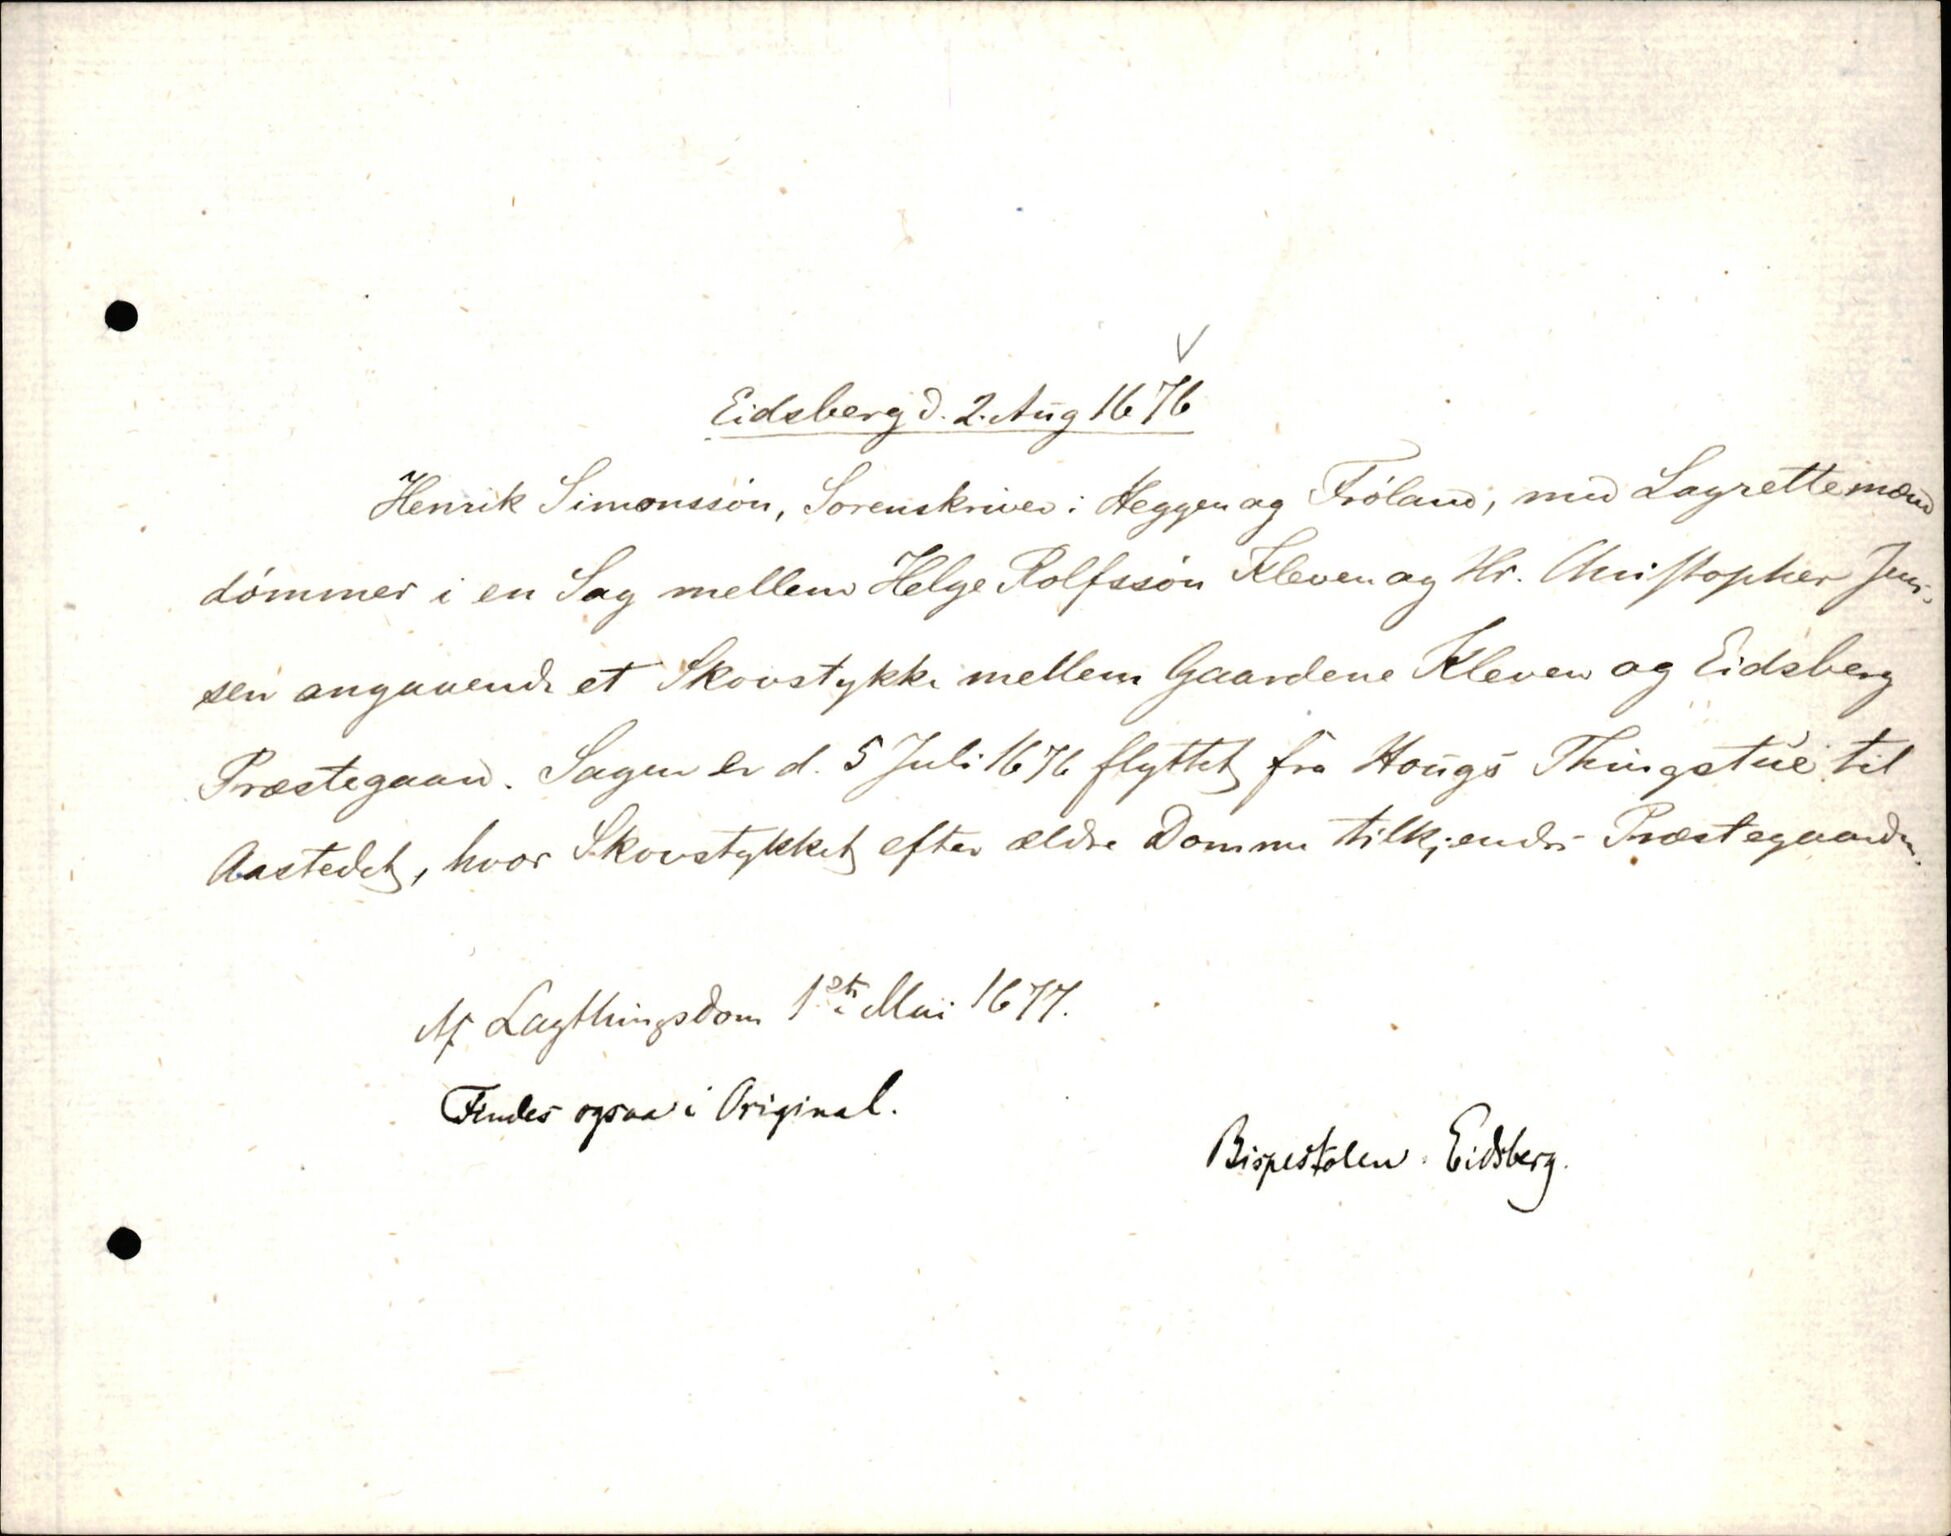 Eidsberg d. 2. Aug 1676
Henrik Simonssön, Sorenskriver i Heggen og Fröland, med Lagrettemænd
dömmer i en Sag mellem Helge Rolfssön Kleven og Hr. Christopher Jen-
sen angaaende et Skovstykke mellem Gaardene Kleven og Eidsberg
Præstegaard. Sagen er d. 5 Juli 1676 flyttet fra Hougs Thingstue til
Aastedet, hvor Skovstykket efter ældre Domme tilkjendes Præstegaarden.
Af Lagthingsdom 1ste Mai 1677.
Findes ogsaa i Original.
Bispestolen. Eidsberg.